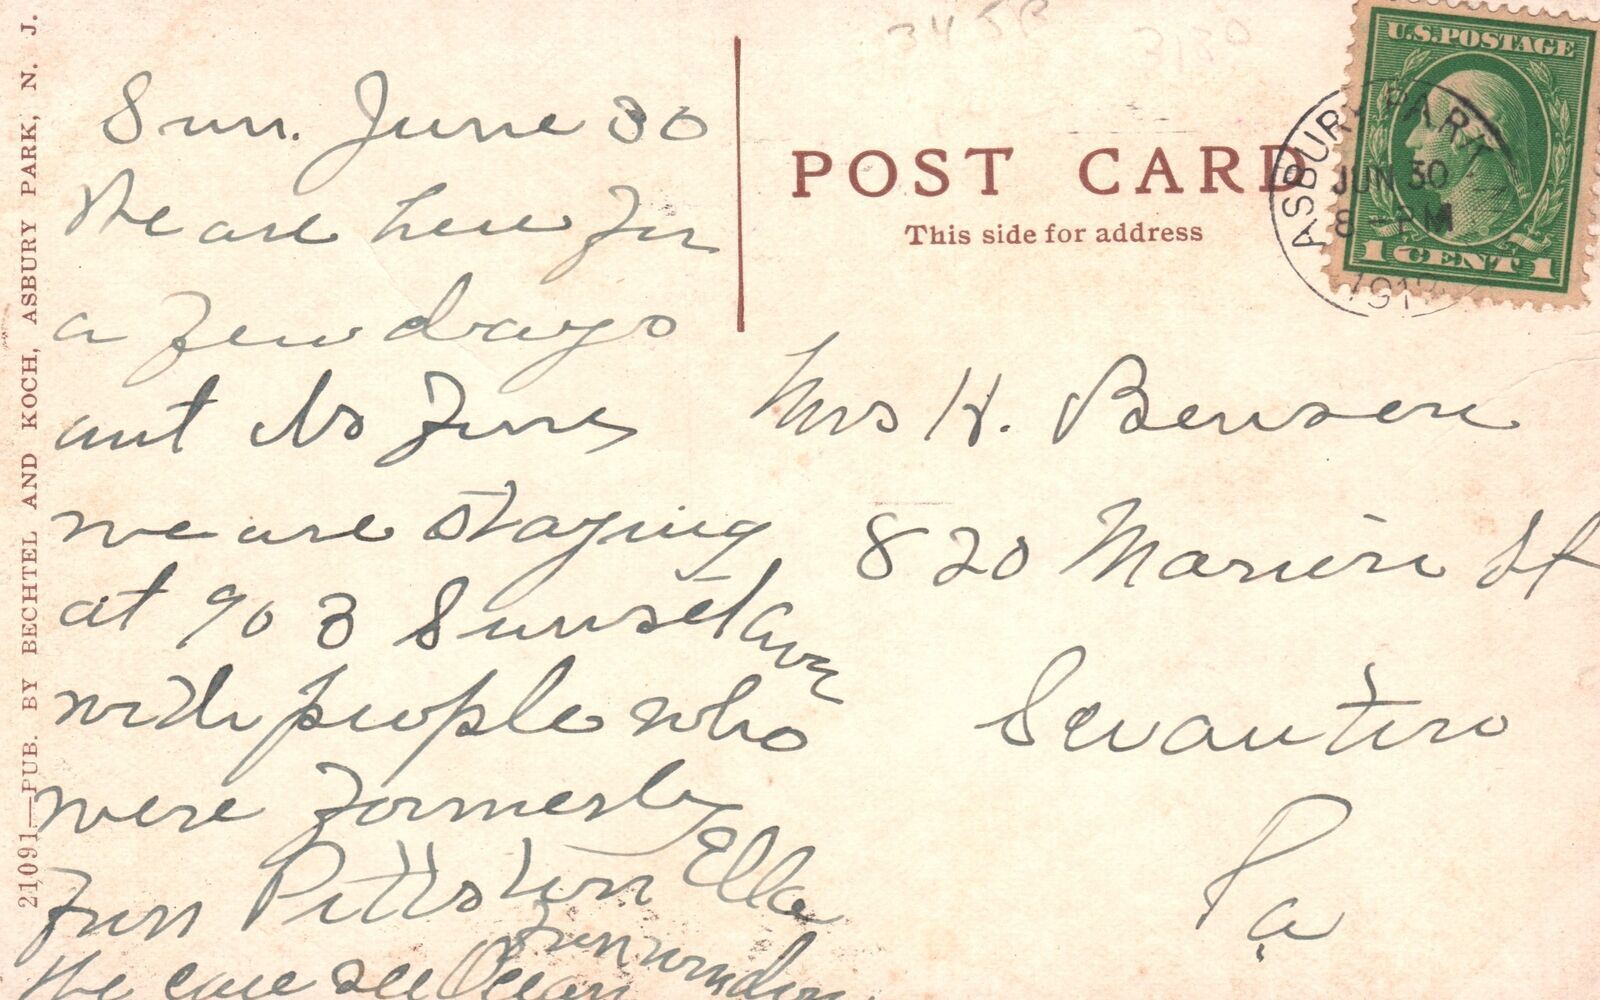 Sun. June 30
We are here for
a few days
and it's fine
we are staying
at 903 Sunset ave
with people who
were formerly
from Pittston Ella
We can see Ocean from window
POST CARD
This side for address
U.S. POSTAGE
1 CENT 1
ASBURY PARK
JUN 30
8 - PM
1912
Mrs H. Benson
820 Marion St
Scranton
Pa
21091—PUB. BY BECHTEL AND KOCH, ASBURY PARK, N. J.